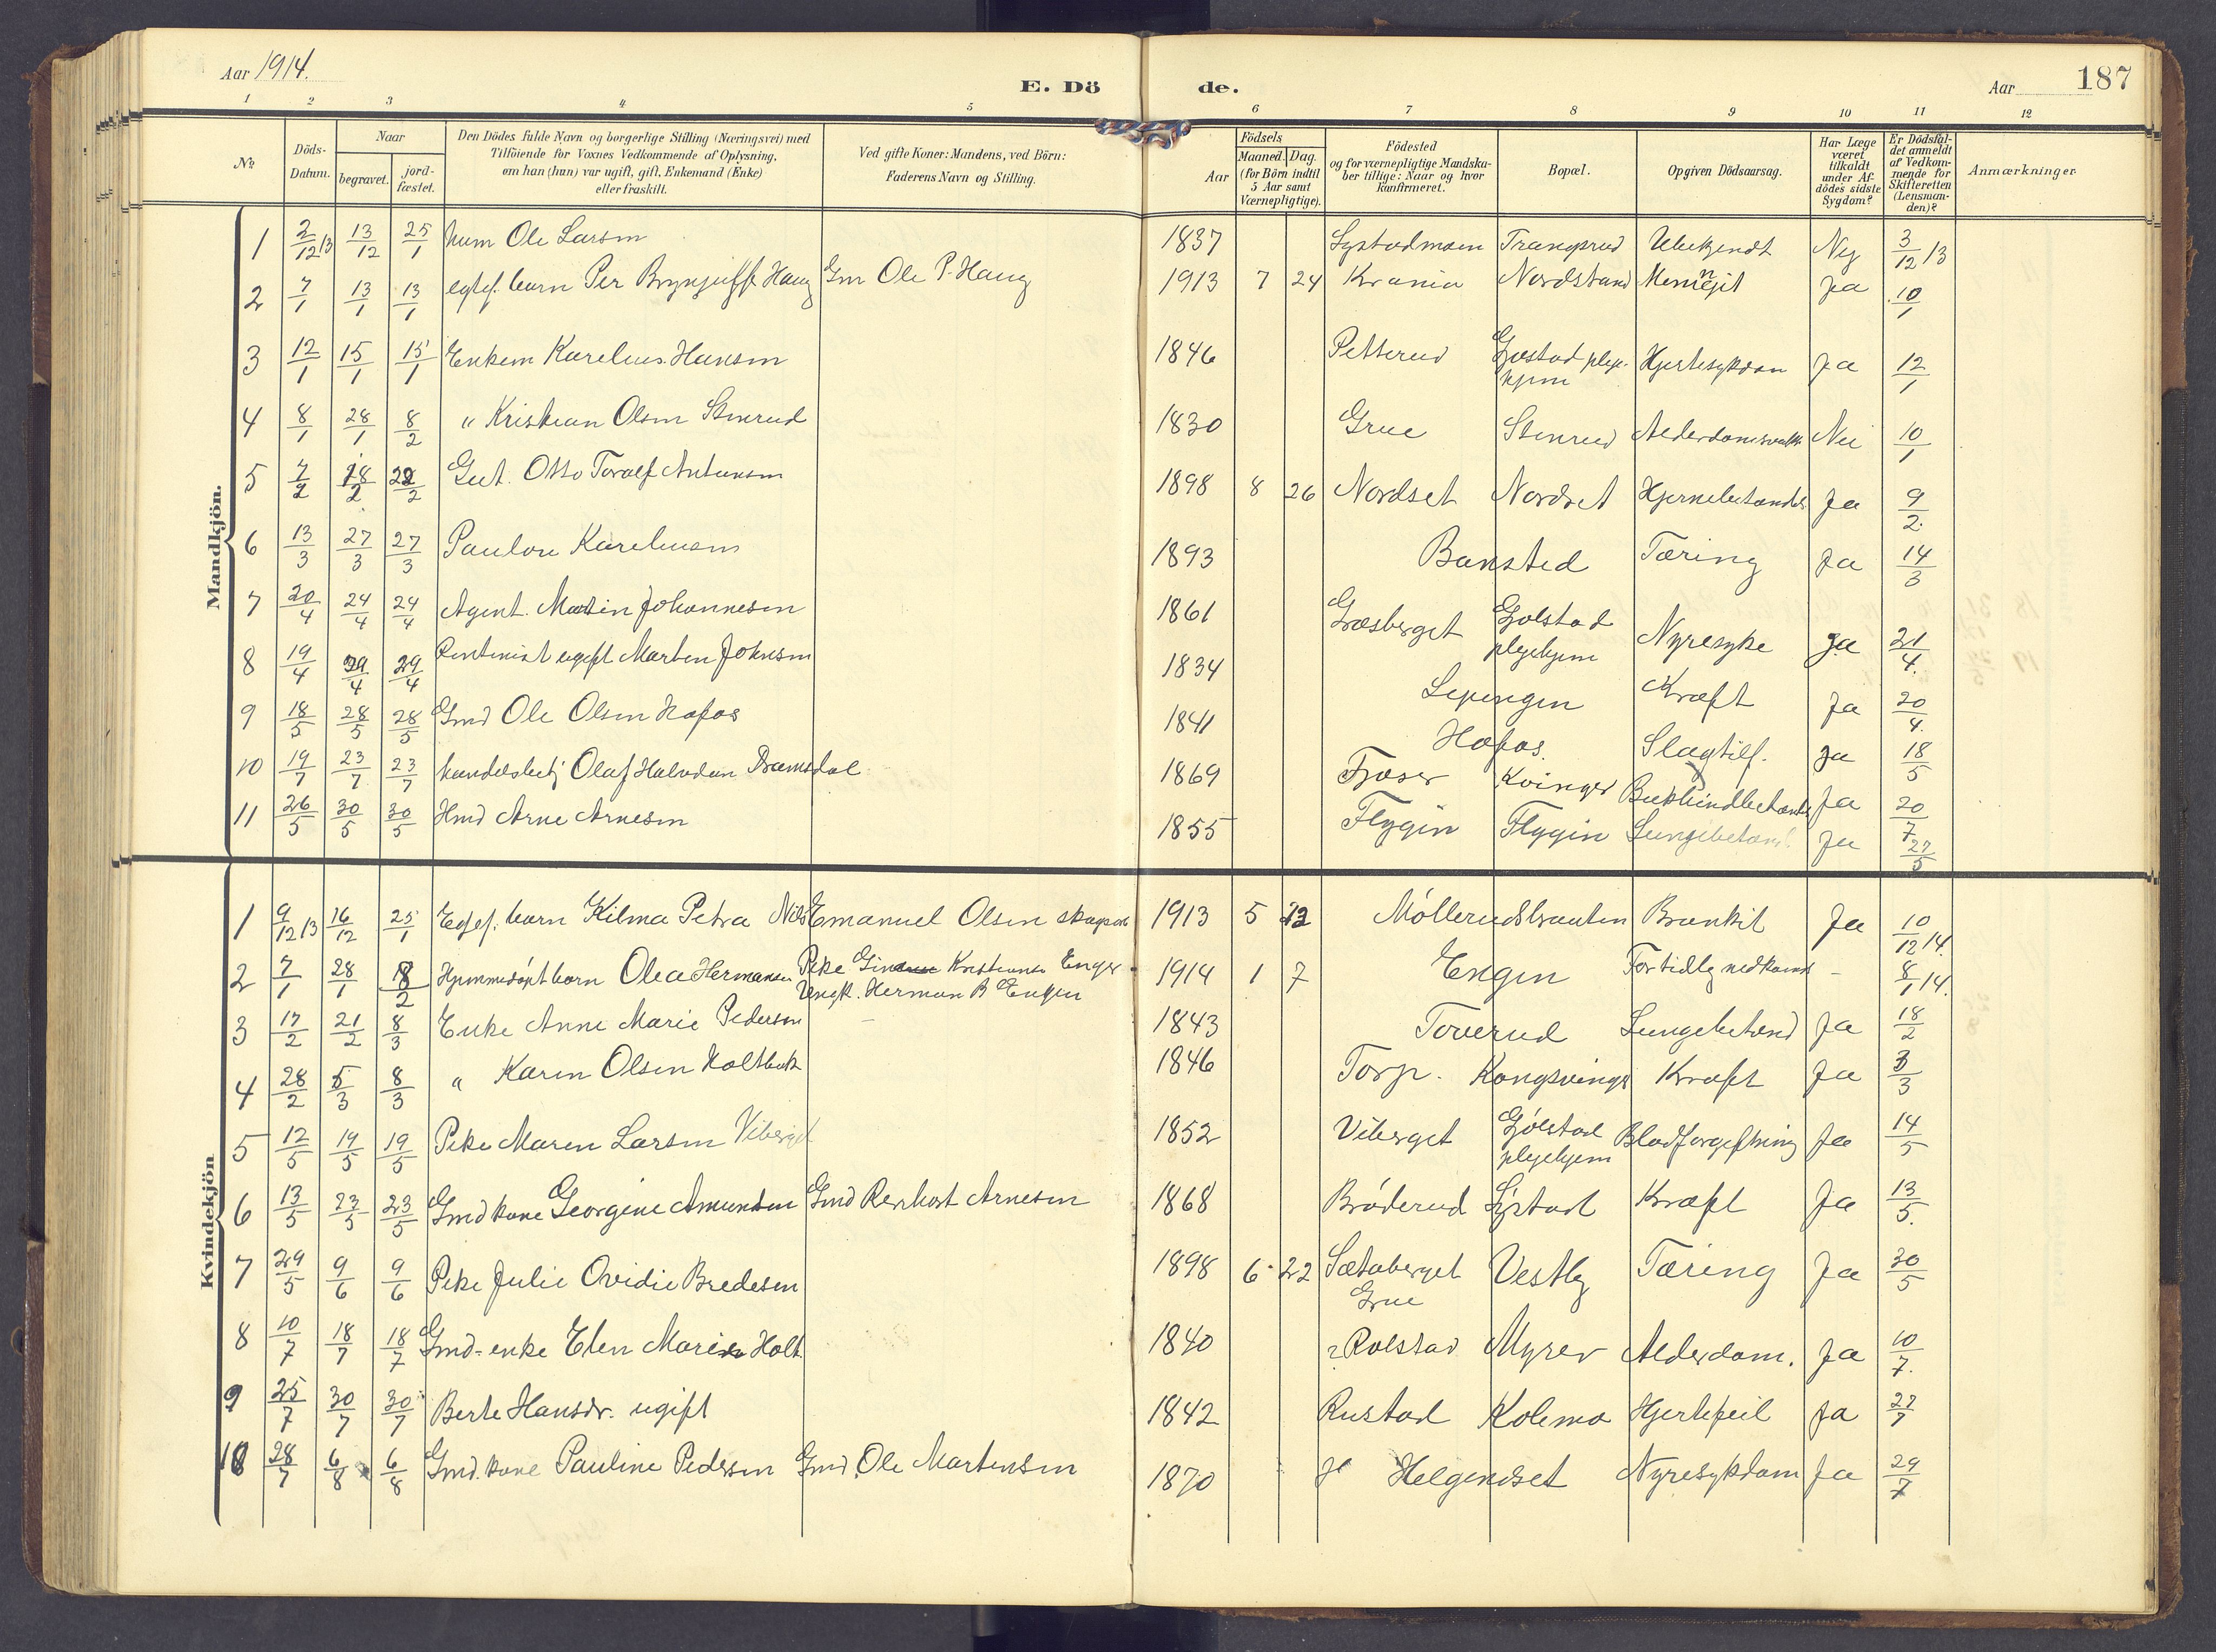 Aar 1914.
E. Dö de.
Aar 187
1 2 3 4 5 6 7 8 9 10 11 12
No
Döds-Datum.
Naar
begravet.
jord-fæstet.
Den Dödes fulde Navn og borgerlige Stilling (Næringsvei) med
Tilföiende for Voxnes Vedkommende af Oplysning,
om han (hun) var ugift, gift, Enkemand (Enke)
eller fraskilt.
Ved gifte Koner: Mandens, ved Börn:
Faderens Navn og Stilling.
Födsels
Aar
Maaned. Dag.
(for Börn indtil
5 Aar samt
Værnepligtige).
Födested
og for værnepligtige Mandska-
ber tillige: Naar og hvor
Konfirmeret.
Bopæl.
Opgiven Dödsaarsag.
Har Læge
været
tilkaldt
under Af-
dödes sidste
Sygdom?
Er Dödsfal-
det anmeldt
af Vedkom-
mende for
Skifteretten
(Lensman-
den)?
Anmærkninger
Mandkjön.
1 2/12 13 13/12 25/1 Ole Larsen 1837 Trangsrud Ubekjendt Nej 3/12 13
2 7/1 13/1 13/1 egtef. barn Per Brynjulf Haug Gm Ole P. Haug 1913 7 24 Krania Nordstrand Ja 10/1
3 12/1 15/1 15/1 Enkem Karelius Hansen 1846 Petterud Gjøstad pleje-
hjem Hjertesykdom Ja 12/1
4 8/1 28/1 8/2 " Kristian Olsen Stenrud 1830 Grue Stenrud Nei 10/1
5 7/2 18/2 22/2 Gut. Otto Toralf Antonsen 1898 8 26 Nordset Nordset Hjernebetændels Ja 9/2
6 13/3 27/3 27/3 Karelius 1893 Bansted Tæring Ja 14/3
7 20/4 24/4 24/4 Agent. Martin Johannesen 1861 Græsberget Gjølstad
plejehjem Nyresyke Ja 21/4
8 19/4 29/4 29/4 ugift Marten Johnsen 1834 Kræft Ja 20/4
9 18/5 28/5 28/5 Gmd Ole Olsen Hofos 1841 Hofos. Slagtilf. Ja 18/5
10 19/7 23/7 23/7 handelsbetj Olaf Halvdan Bramsdal 1869 Kvinger Ja 20/7
11 26/5 30/5 30/5 Hmd Arne Arnesen 1855 Flygin Flygin Lungebetænd. Ja 27/5
Kvindekjön
1 9/12 13 16/12 25/1 Egtef. barn Hilma Petra Nils Emanuel Olsen 1913 5 Møllerudbraaten Ja 10/12 14.
2 7/1 28/1 8/2 Hjemmedøpt barn Olea Hermansen Pike Kristiansen Enger
Ungk. Herman B Engen 1914 1 7 Engen For tidlig nedkomst - 8/1 14.
3 17/2 21/2 8/3 Enke Anne Marie Pedersen 1843 Toverud Lungebetænd Ja 18/2
4 28/2 5/3 8/3 " Karen Olsen Holtbak 1846 Torp. Kongsvinger Kræft Ja 3/3
5 12/5 19/5 19/5 Pike Maren Larsen Viberget 1852 Viberget Gjølstad
plejehjem Blodforgiftning Ja 14/5
6 13/5 23/5 23/5 Gmd kone Georgine Amundsen Gmd Reinhart Arnesen 1868 Brøderud Systad Kræft Ja 13/5.
7 29/5 9/6 9/6 Pike Julie Ovidie Bredesen 1898 6 22 Sætaberget
Grue Vestby Tæring Ja 30/5
8 10/7 18/7 18/7 Gmd-enke Elen Marie Holt. 1840 Rolstad Myrer Alderdom. Ja 10/7.
9 25/7 30/7 30/7 Berte Hansdr. ugift 1842 Rustad Kolemo Hjertefeil Ja 27/7
10 28/7 6/8 6/8 Gmd. kone Pauline Pedersen Gmd. Ole Martinsen 1870 Helgenset Nyresykdom Ja 29/7